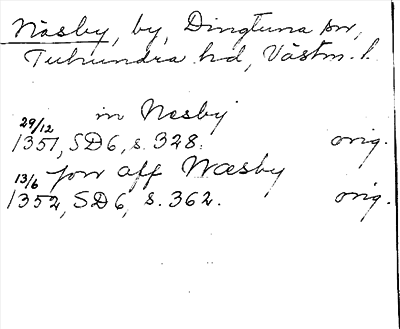 Näsby, by, Dingtuna sn,
Tuhundra hd, Västm. l.
in Nesby
29/12
1351, SD6, s. 328. orig.
13/6 jon aff Næsby
1352, SD6, s. 362. orig.